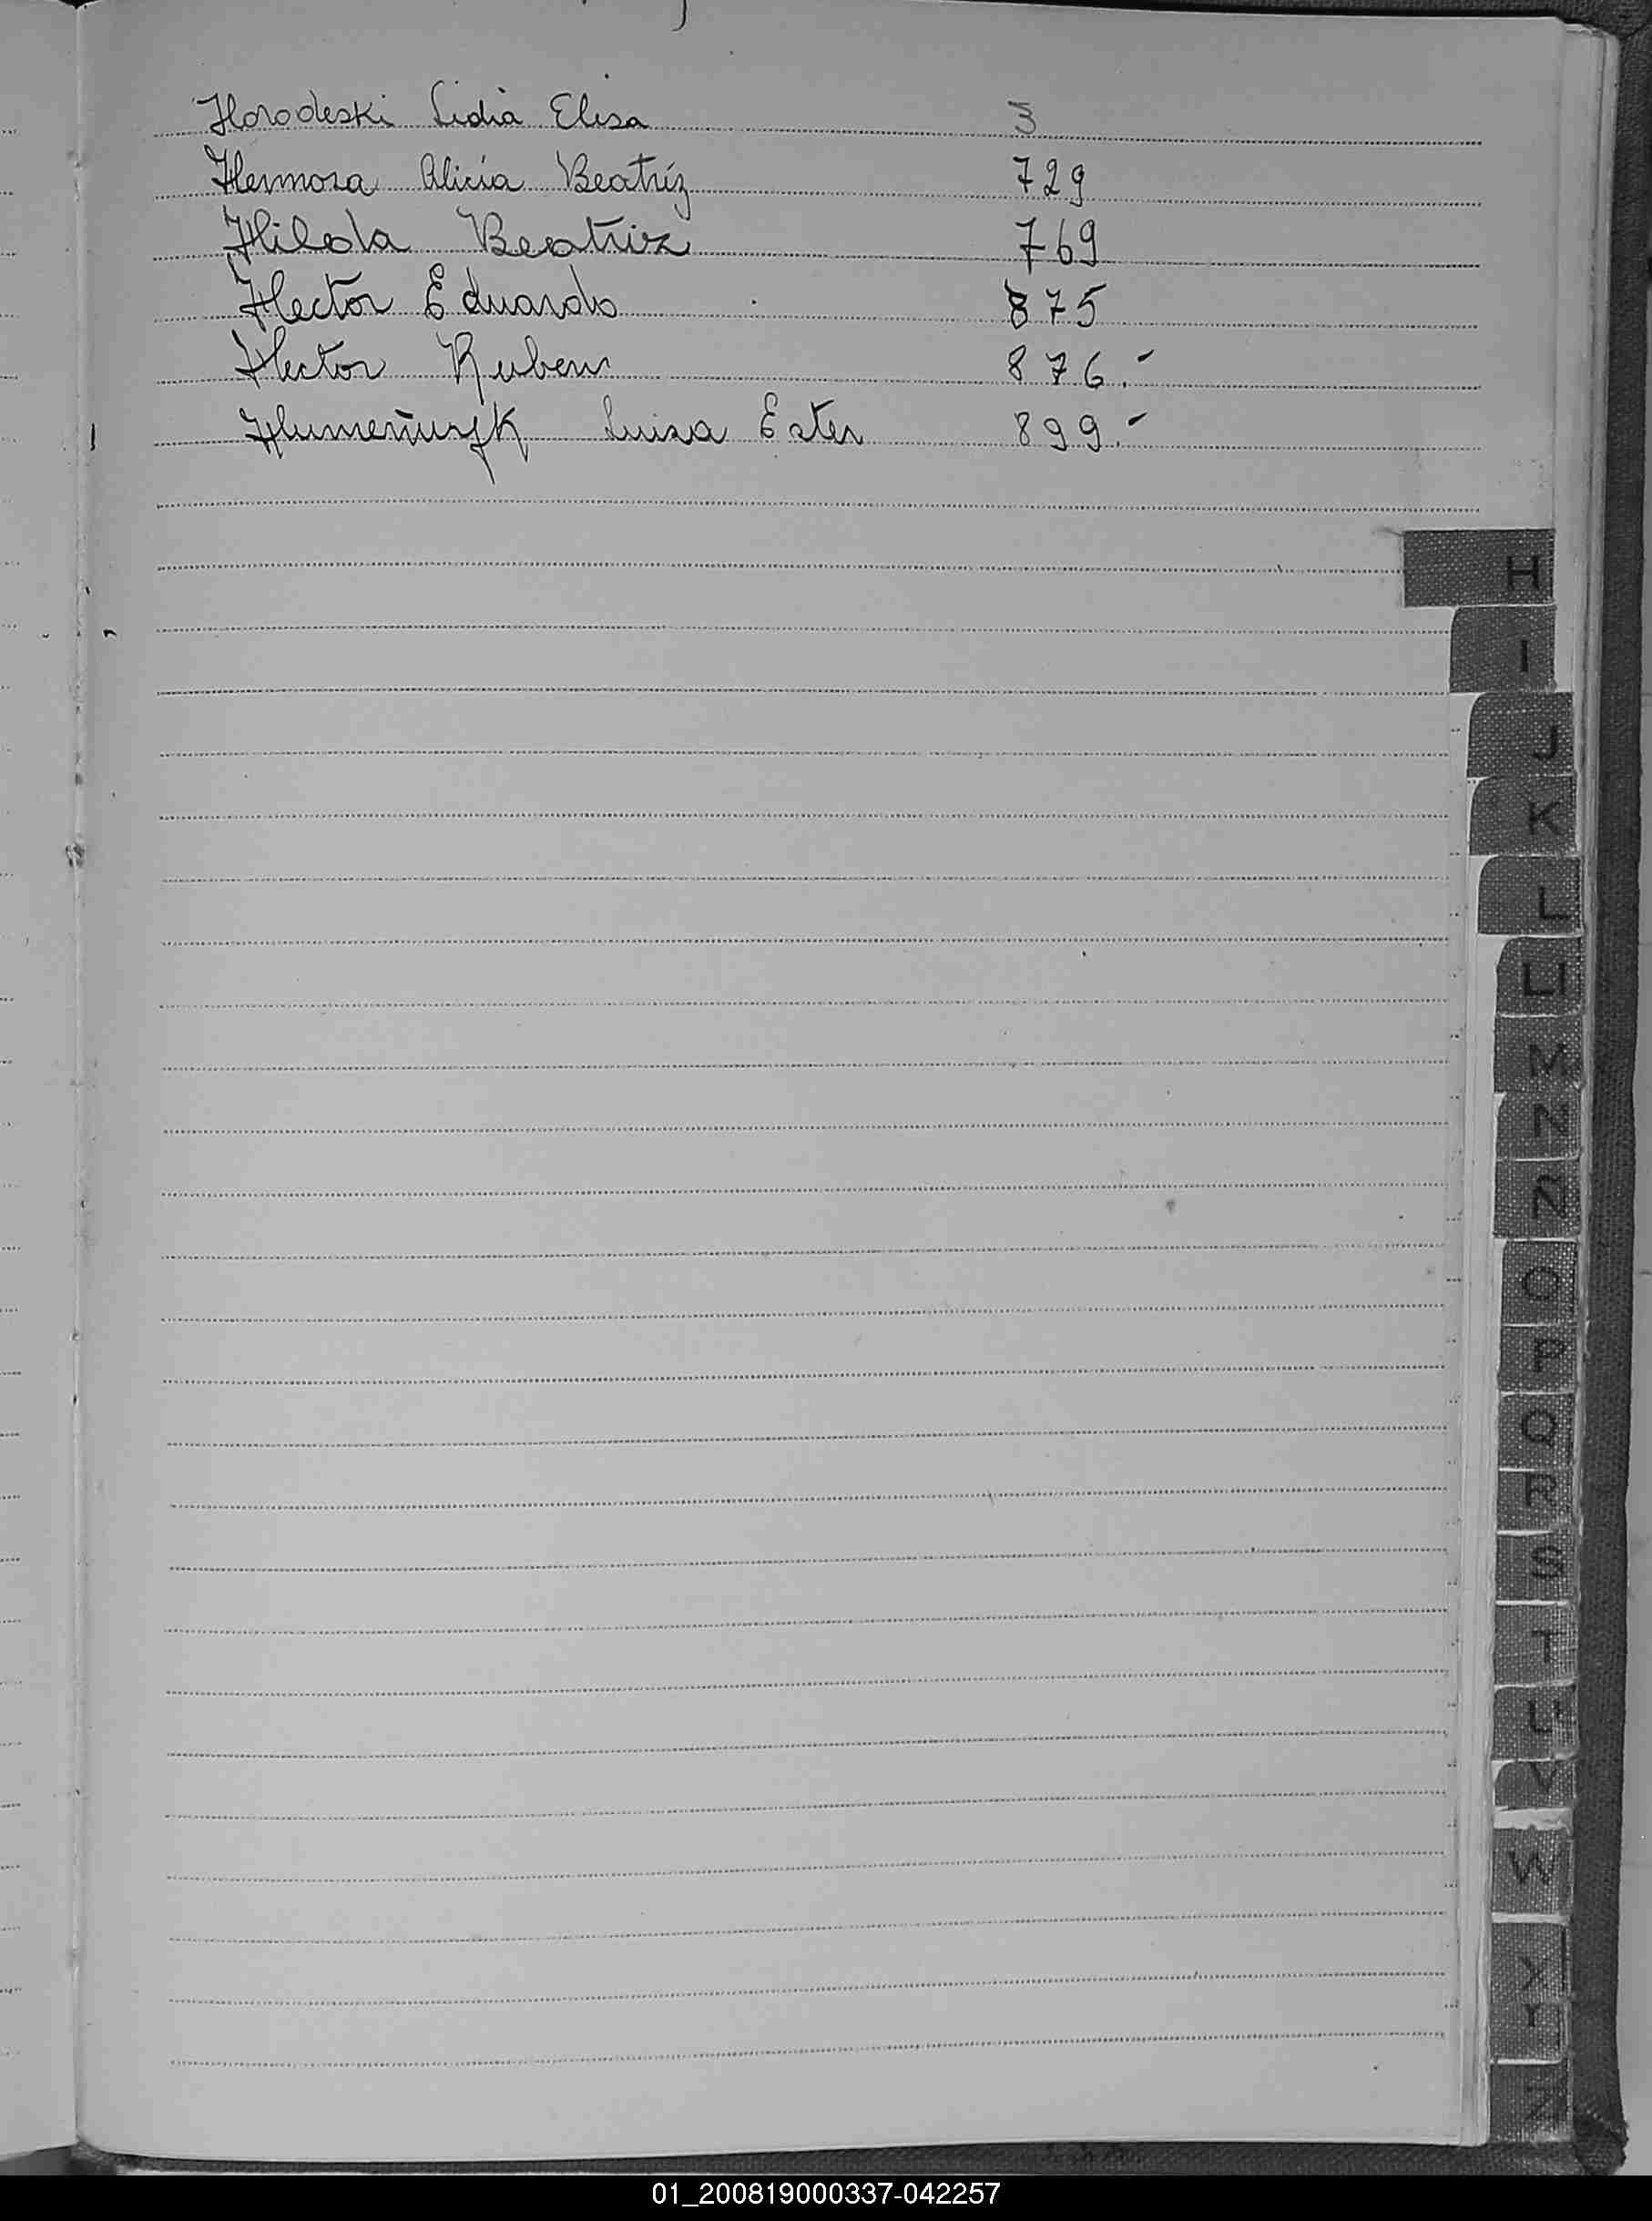 Horodeski Lidia Elisa 3
Hermosa Alicia Beatríz 729
Hilda Beatriz 769
Hector Eduardo 875
Hector Ruben 876.-
Luisa Ester 899.-
H
I
J
K
L
Ll
M
N
Ñ
O
P
Q
R
S
T
U
V
W
X
Y
Z
01_200819000337-042257